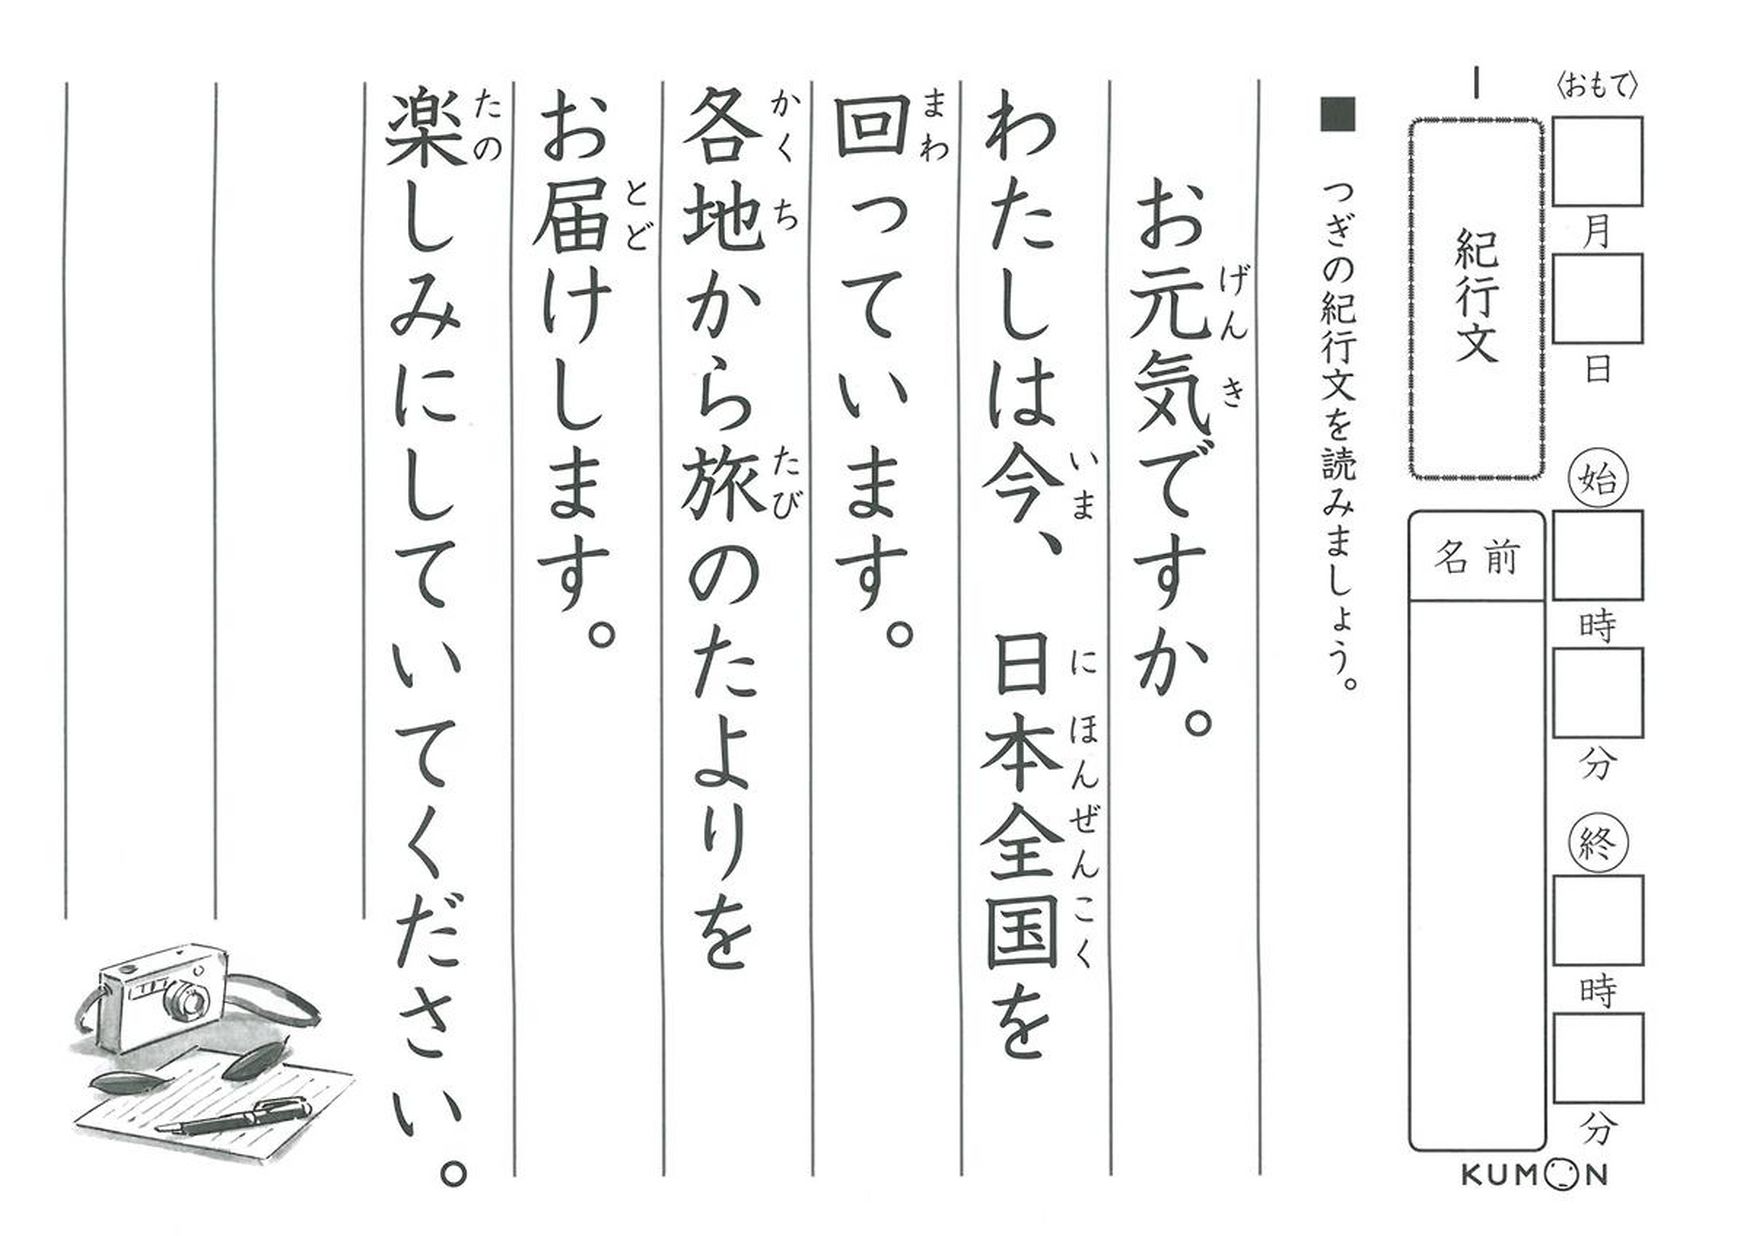 〈おもて〉
月
日
始
時
分
終
時
分
I
紀行文
名前
KUMON
■ つぎの紀行文を読みましょう。
お元気ですか。
げんき
わたしは今、日本全国を
いま にほんぜんこく
回っています。
まわ
各地から旅のたよりを
かくち たび
お届けします。
とど
楽しみにしていてください。
たの